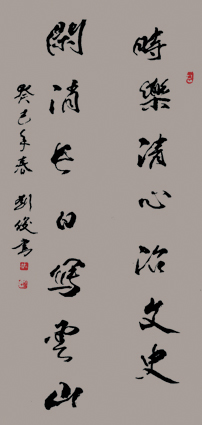 時樂清心治文史
閑消長日寫雲山
癸巳年春 劉俊書